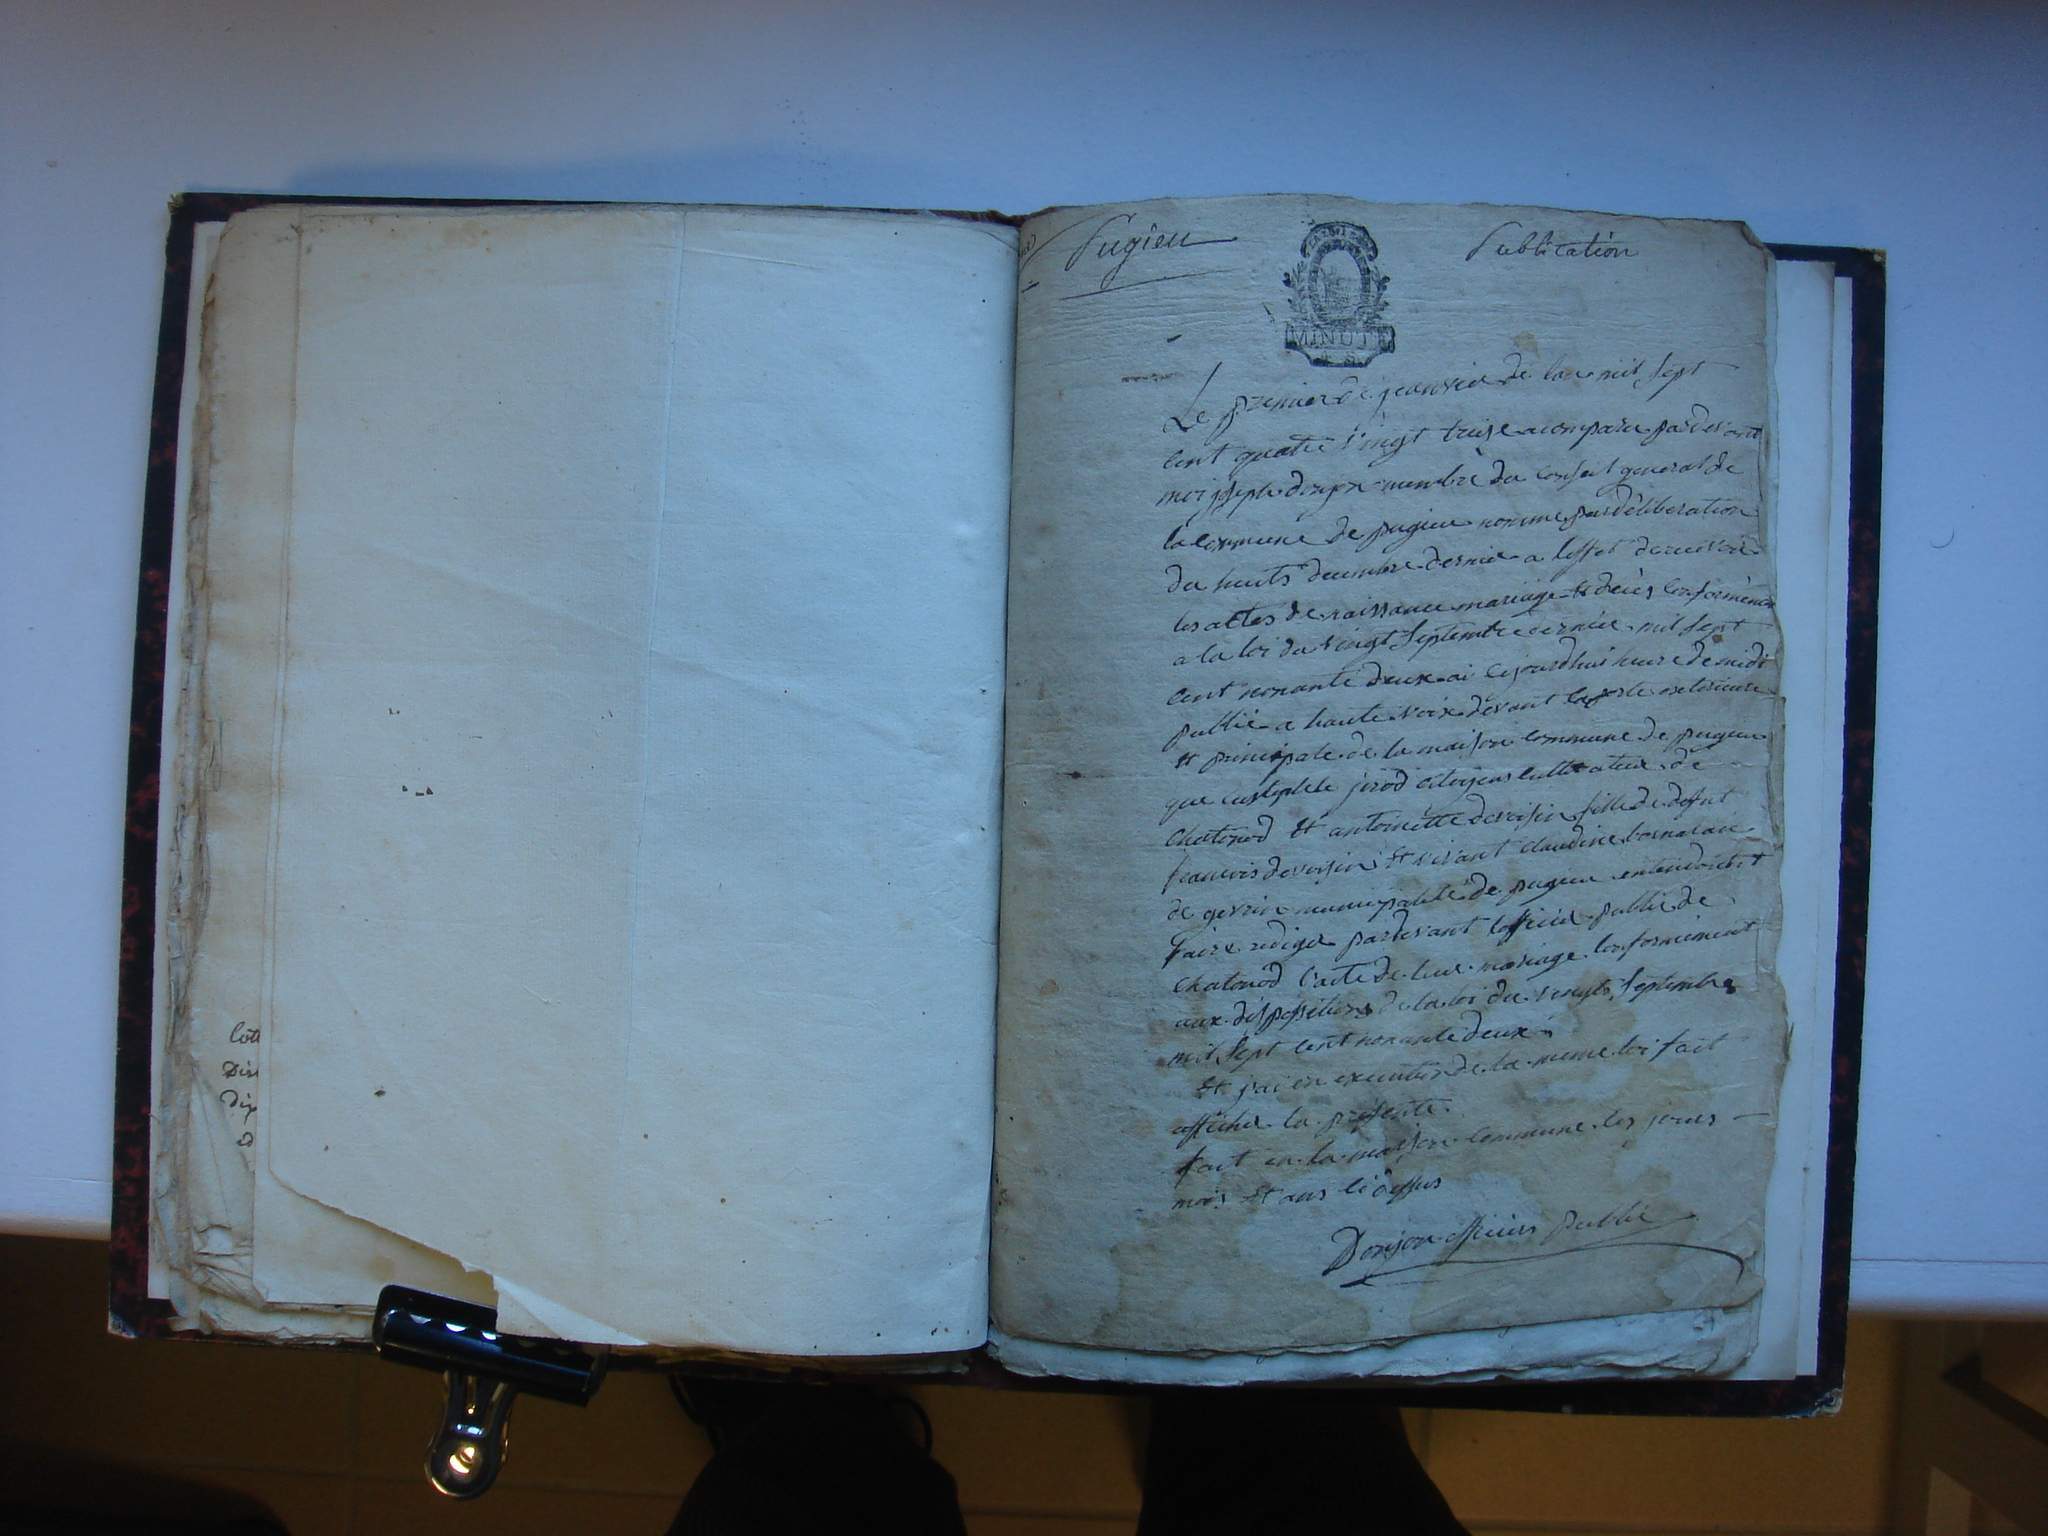 Cott
Dist
dix
Pugieu
Publication
MINUTE
4 S
Le premier de jeanvier de lan mil sept
cent quatre vingt treize a comparu pardevant
moi joseph donjon membre du conseil general de
la commune de pugieu nommé par déliberation
du huits decembre dernier a leffet de recevoir
les actes de naissance mariage et décès conformémen
a la loi du vingt septembre dernier mil sept
cent nonante deux ai cejourdhui heure de midi
publié a haute voix devant la porte exterieure
et principale de la maison commune de pugieu
que jirod citoyens cultivateur de
chatonod et antoinette devoisin fille de defunt
francois devoisin et vivant claudine
de gevrin municipalité de pugieu entendoient
faire rediger pardevant lofficier public de
chatonod l'acte de leur mariage conformément
aux dispositions de la loi du vingts septembre
mil sept cent nonante deux
Et jai en execution de la meme loi fait
afficher la présente.
fait en la maison commune les jours
mois et ans ci dessus
Donjon officier public